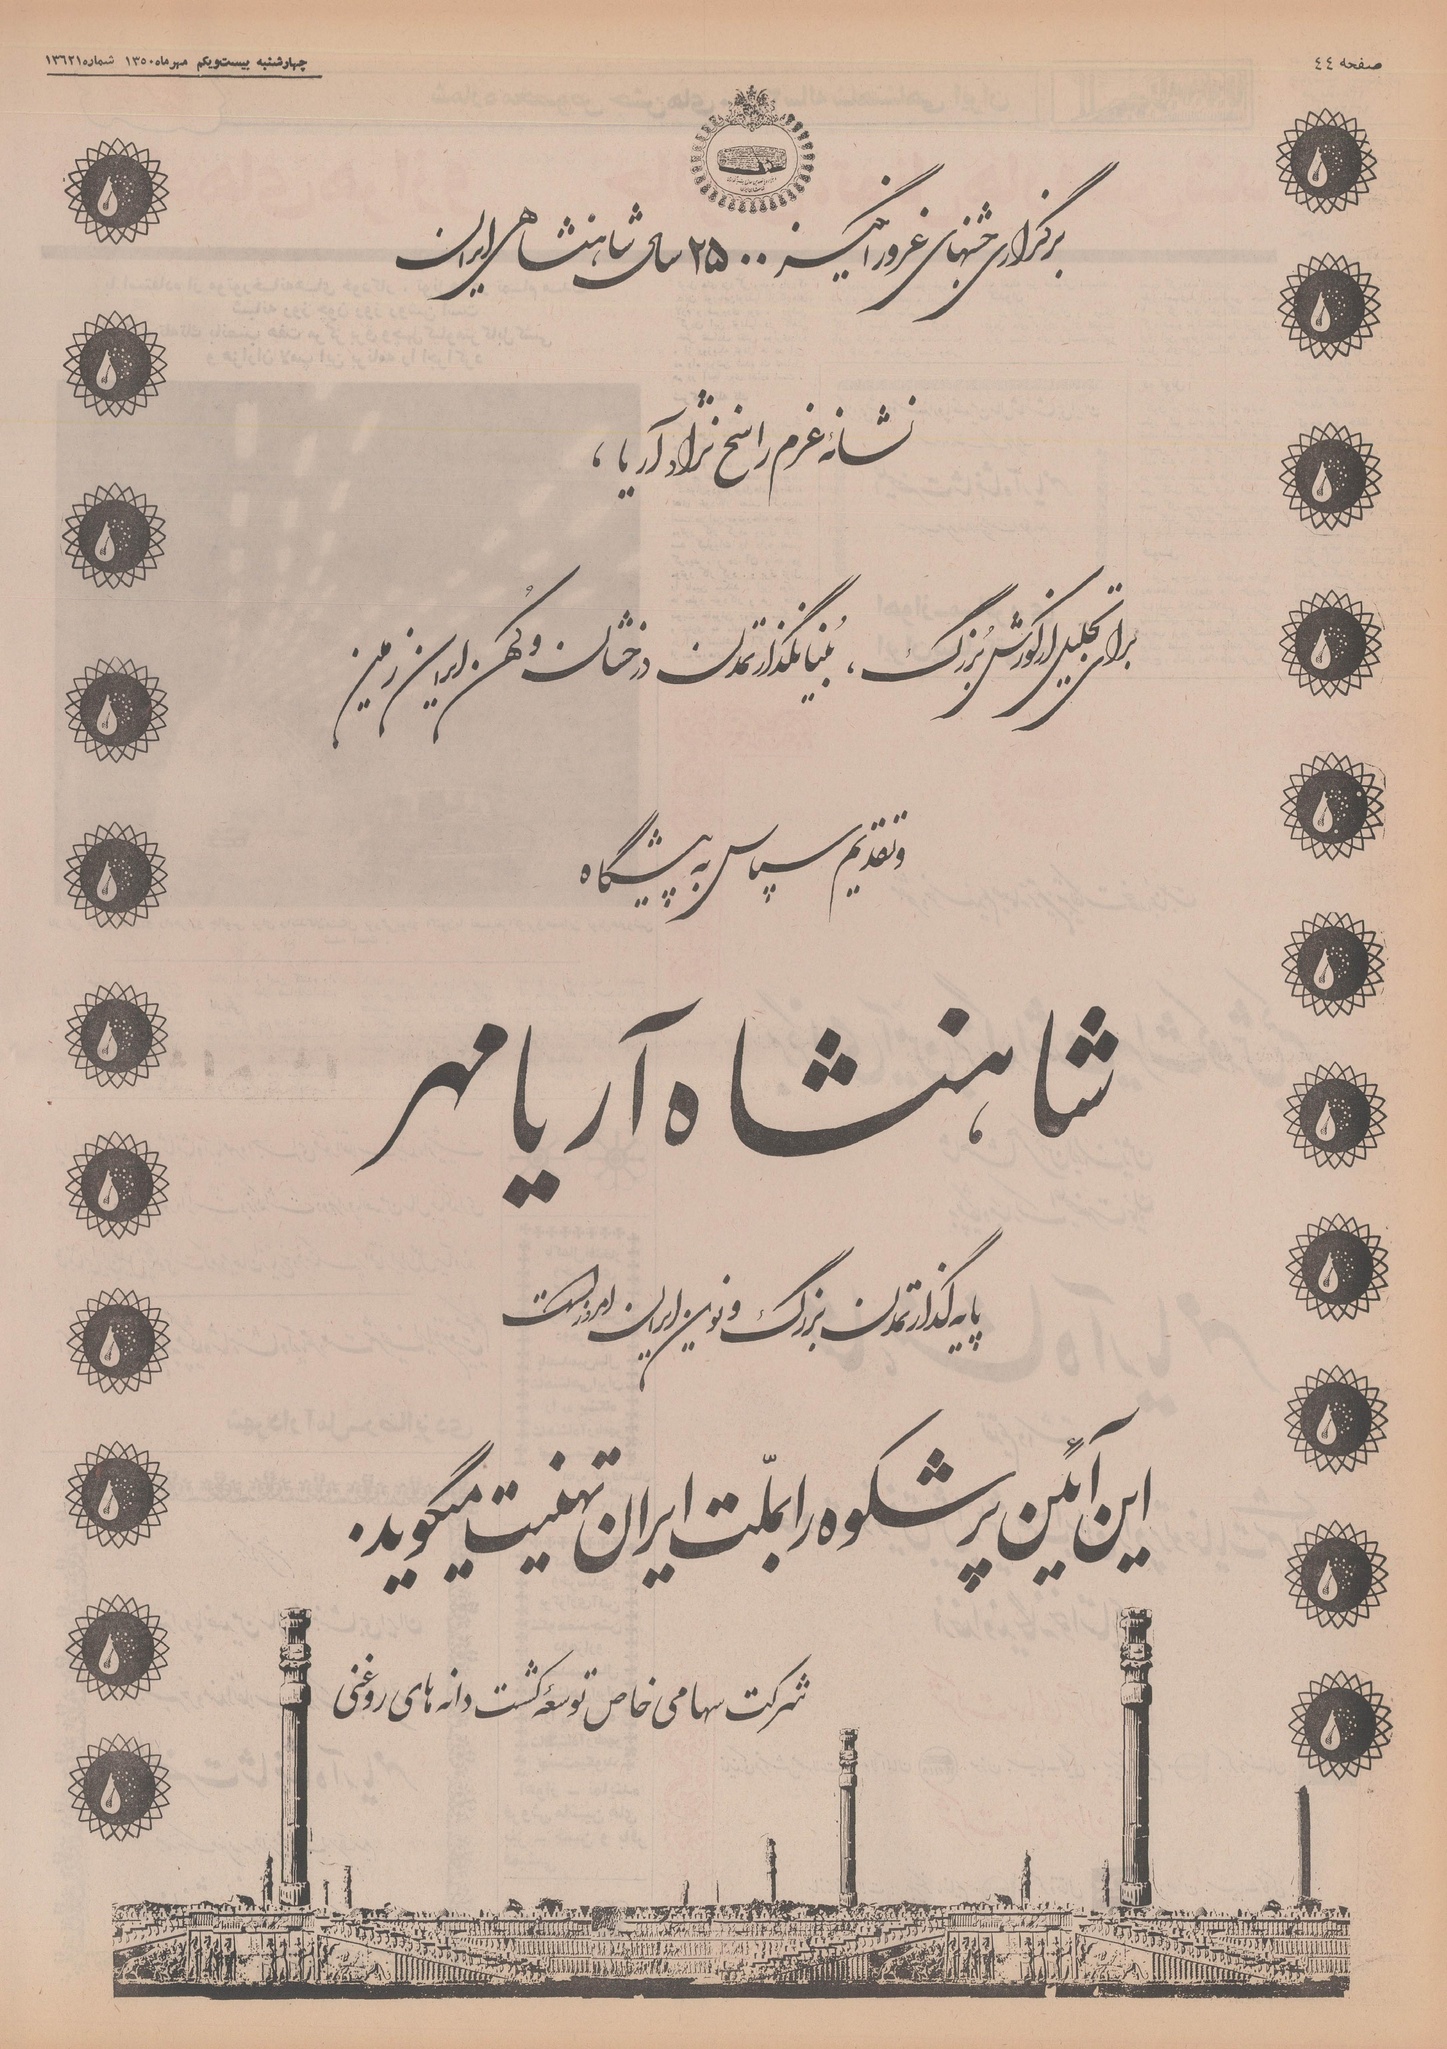 صفحه ٤٤
چهارشنبه بیست‌ویکم مهرماه ۱۳۵۰ شماره ۱۳٦۲۱
برگزاری جشنهای غرورانگیز ۲۵۰۰ سالهٔ شاهنشاهی ایران
نشانهٔ عزم راسخ نژاد آریا ،
برای تجلیل از کورش بزرگ ، بُنیانگذار تمدن درخشان و کُهن ایران زمین
و تقدیم سپاس به پیشگاه
شاهنشاه آریامهر
پایه گذار تمدن بزرگ و نوین ایران امروز است
این آئین پرشکوه را بملّت ایران تهنیت میگوید.
شرکت سهامی خاص توسعهٔ کشت دانه های روغنی